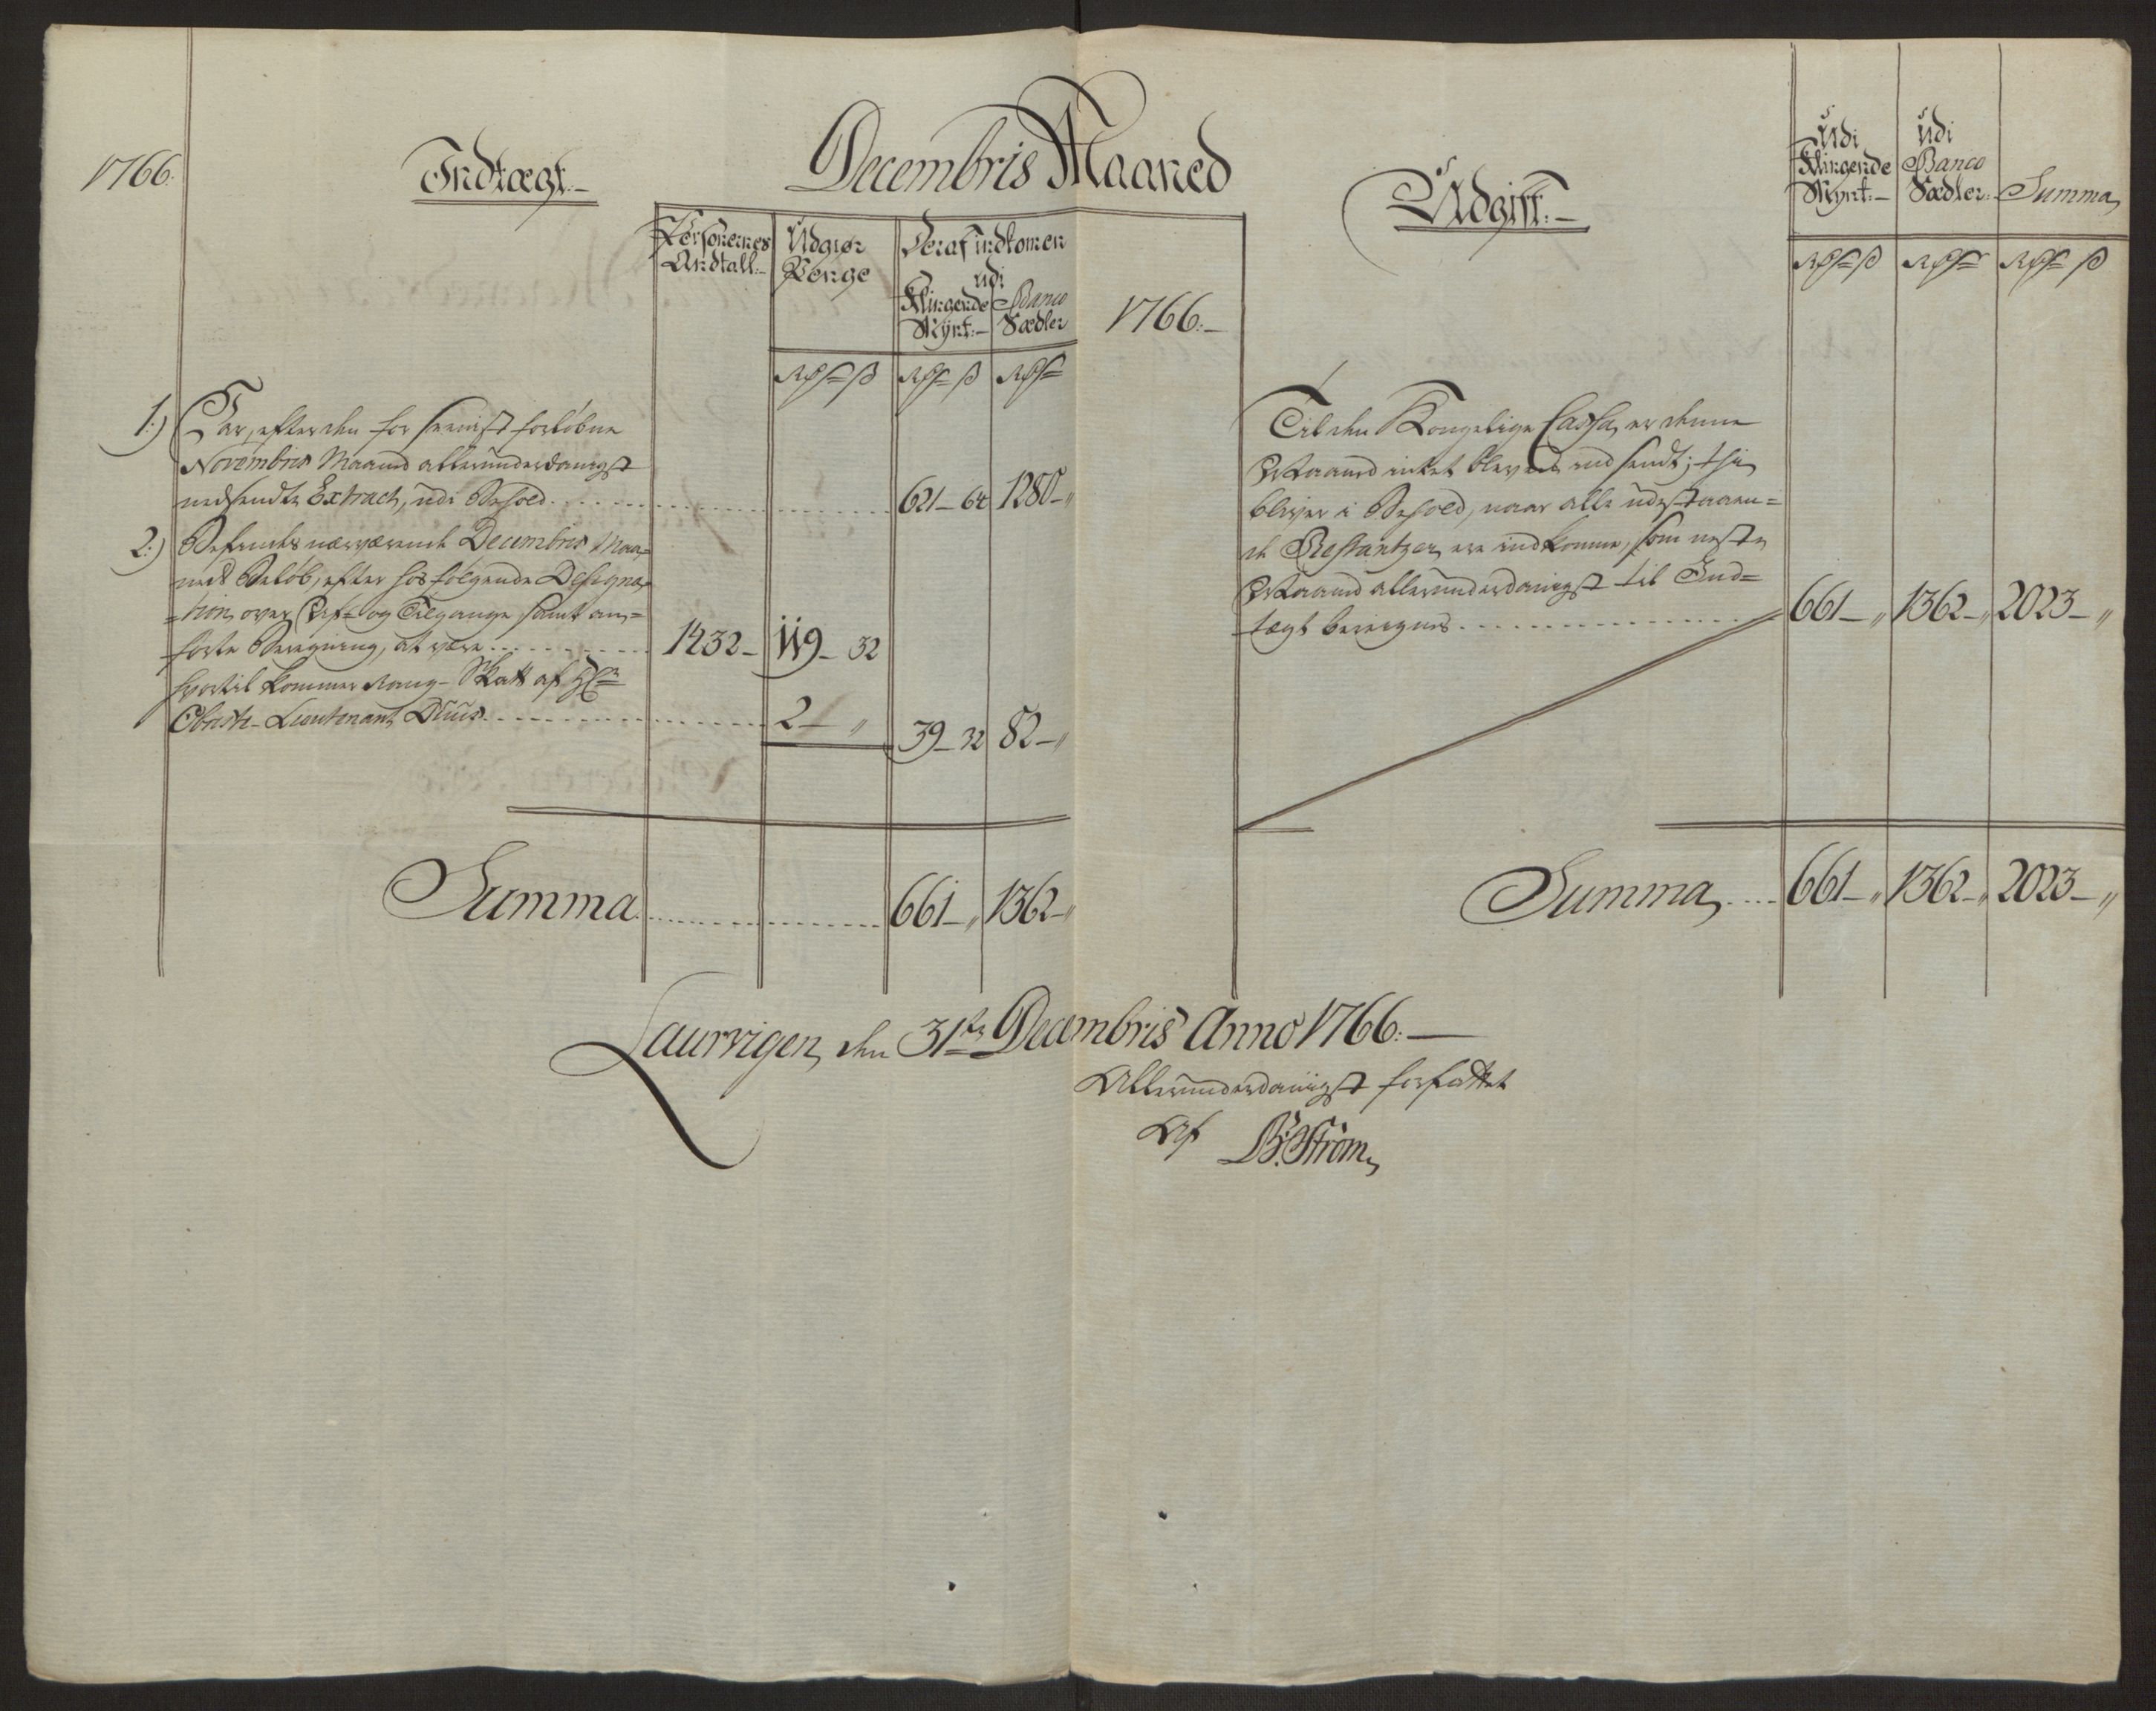 Decembris Maaned
1766.
Indtægt.
Personernes
Andtall.
Udgiør
Penge
Deraf indkomen
udi
Klingende
Mynt.
Banco
Sædler
Rdr ß
Rdr ß
Rdr
1.) Var, efter den for sennist forløbne
Novembris Maaned allerunderdanigst
nedsendte Extract, udi Behold 621 - 64 1280 - "
2.) Befindes nærværende Decembris Maa-
neds Beløb, efter hosfølgende Designa-
=tion over Af- og Tilgange samt an-
førte Beregning, at være 1432 - 119 - 32
hvortil kommer Rang-Skatt af Hr
Obriste-Lieutenant Duus 2 - " 39 - 32 82 - "
Summa 661 - " 1362 - "
1766.
Udgift.
Udi
Klingende
Mynt.
Udi
Banco
Sædler.
Summa
Rdr ß
Rdr
Rdr ß
Til den Kongelige Cassa, er denne
Maaned intet bleven indsendt; thi
bliver i Behold, naar alle udestaaen=
de Restantzer ere indkomne, som neste
Maaned allerunderdanigst til Ind=
tægt beregnes 661 - " 1362 - " 2023 - "
Summa 661 - " 1362 - " 2023 - "
Laurvigen, den 31te Decembris Anno 1766.
Allerunderdanigst forfattet
Af B. Strøm